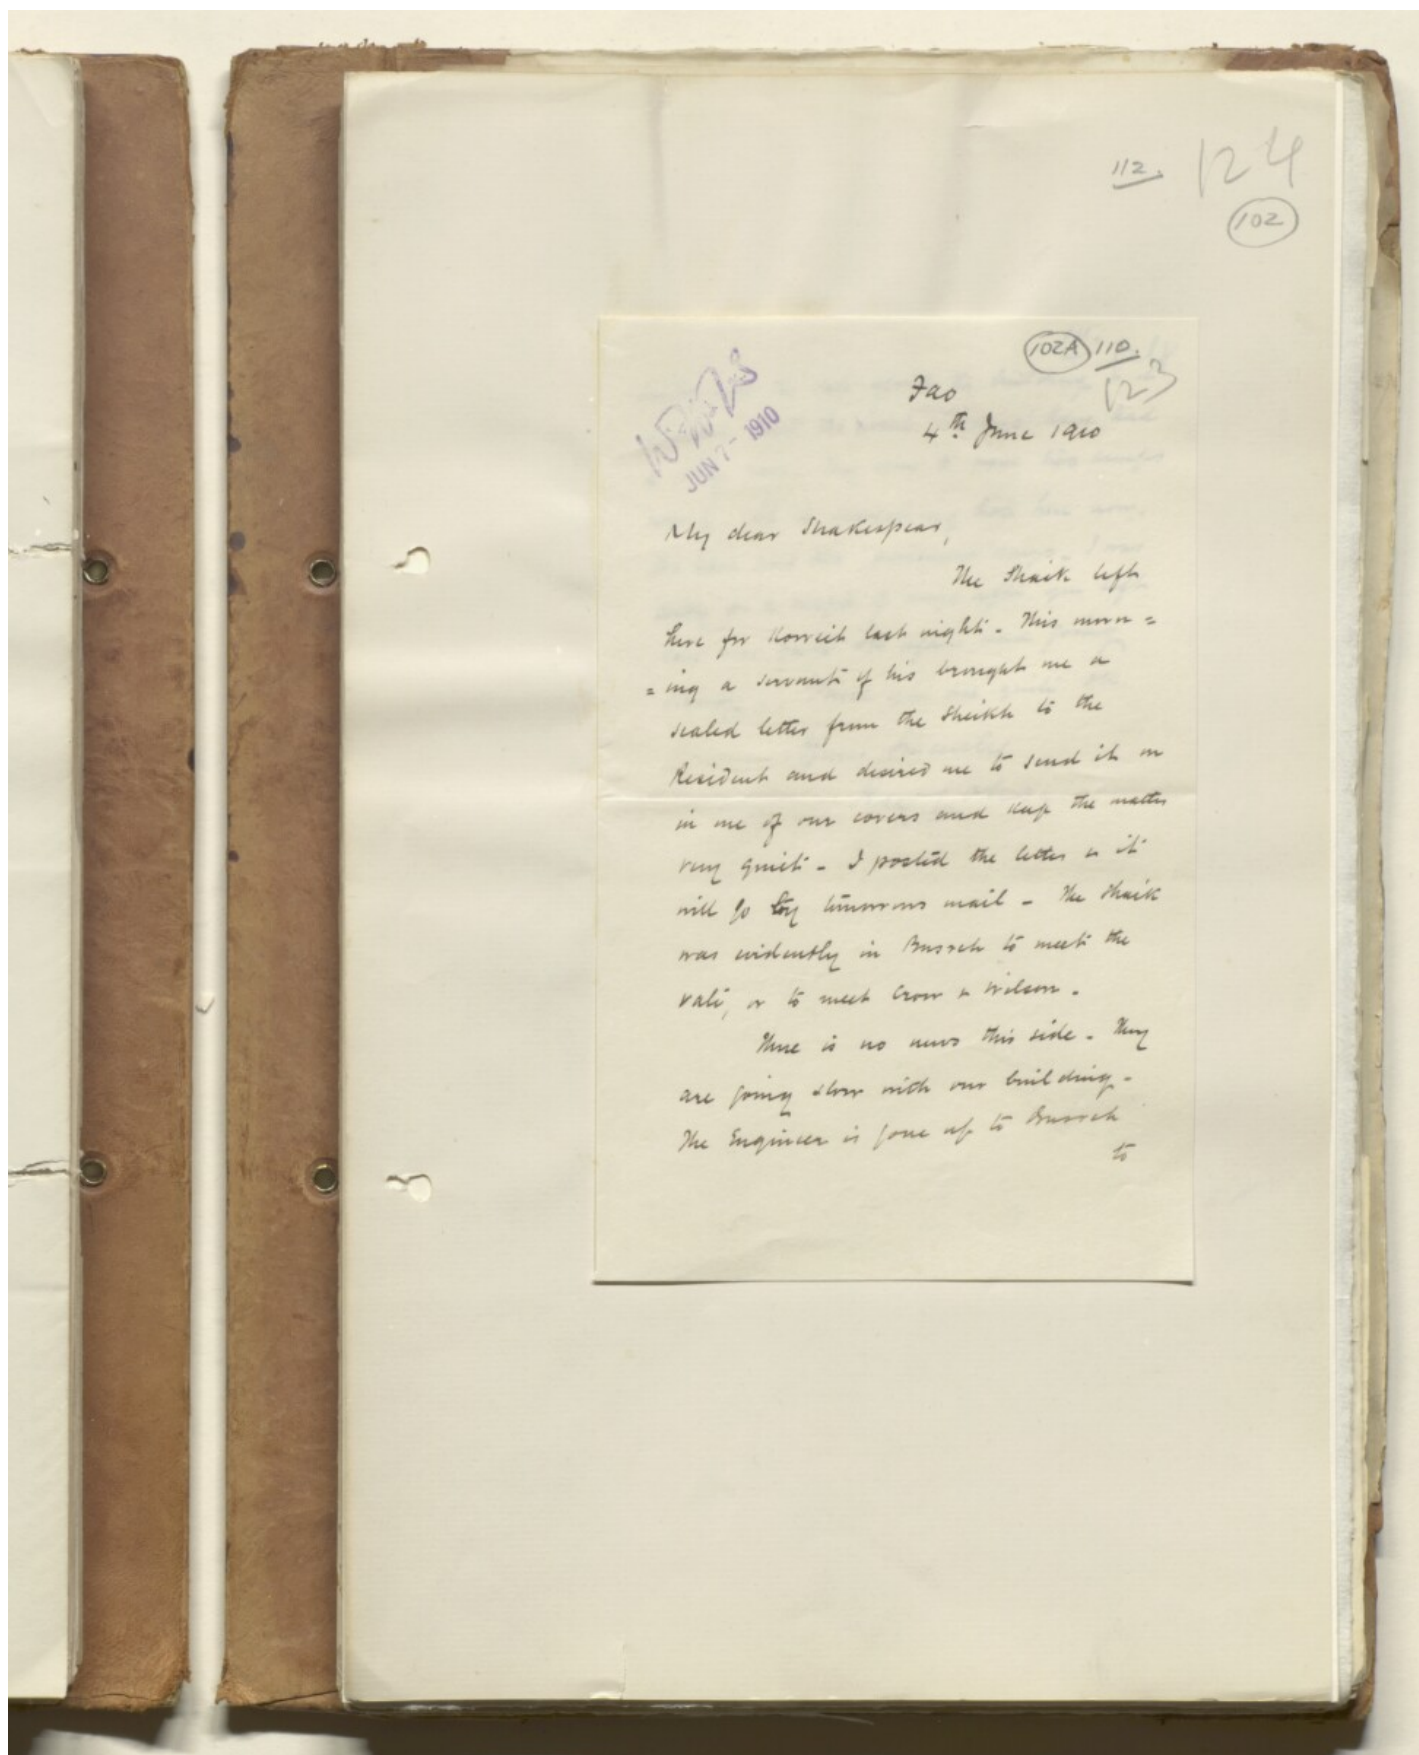 112. 124
102
102A 110.
123
JUN 7 - 1910
Fao
4th June 1910
My dear Shakespear,
The Shaik left
here for Koweit last night. This morn =
= ing a servant of his brought me a
sealed letter from the Sheikh to the
Resident and desired me to send it on
in one of our covers and keep the matter
very quiet - I posted the letter & it
will go by tomorrows mail - The Shaik
was evidently in Busreh to meet the
Vali, or to meet Crow & Wilson.
There is no news this side - They
are going slow with our building -
The Engineer is gone up to Busreh
to